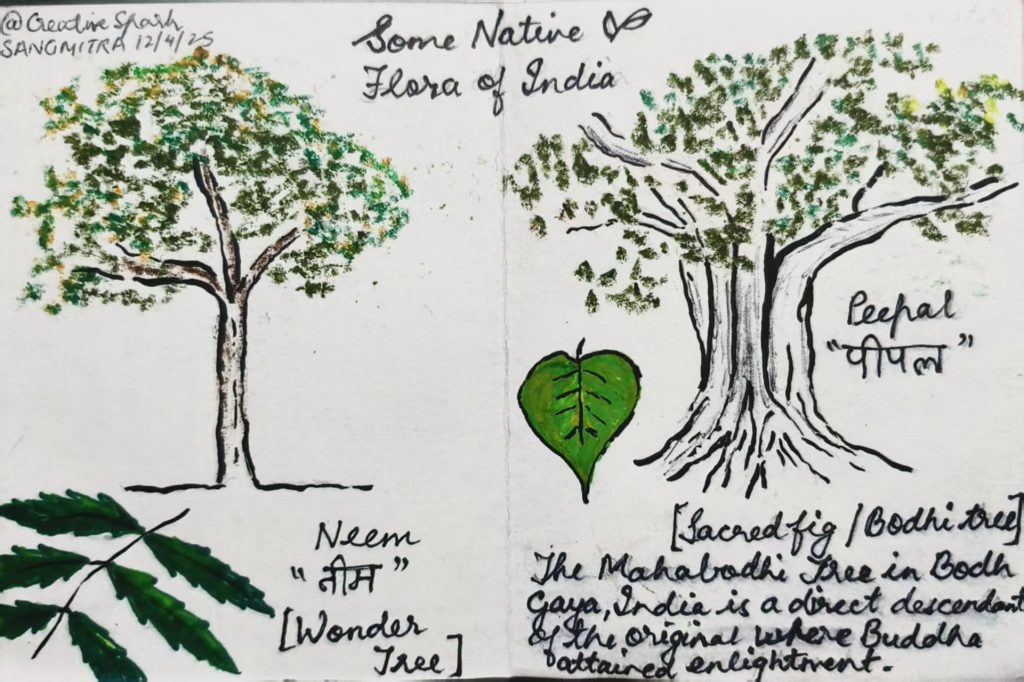 @Creative Spark
SANGMITRA 12/4/25
Some Native
Flora of India
Neem
"नीम"
[Wonder
Tree]
Peepal
"पीपल"
[Sacred fig / Bodhi tree]
The Mahabodhi Tree in Bodh
Gaya, India is a direct descendant
of the original where Buddha
attained enlightment.